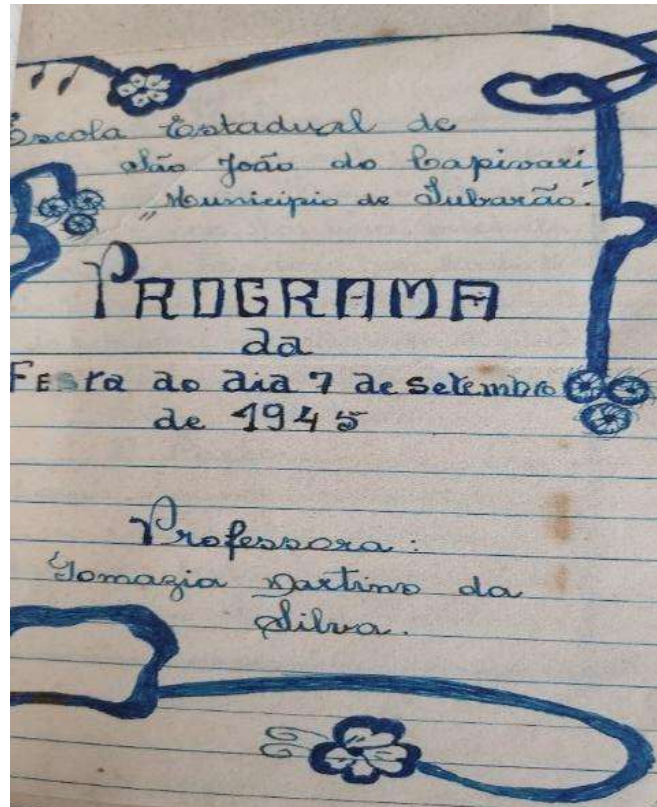 Escola Estadual de
São João do Capivari
Municipio de Tubarão.
PROGRAMA
da
Festa do dia 7 de setembro
de 1945
Professora:
Tomazia Martins da
Silva.